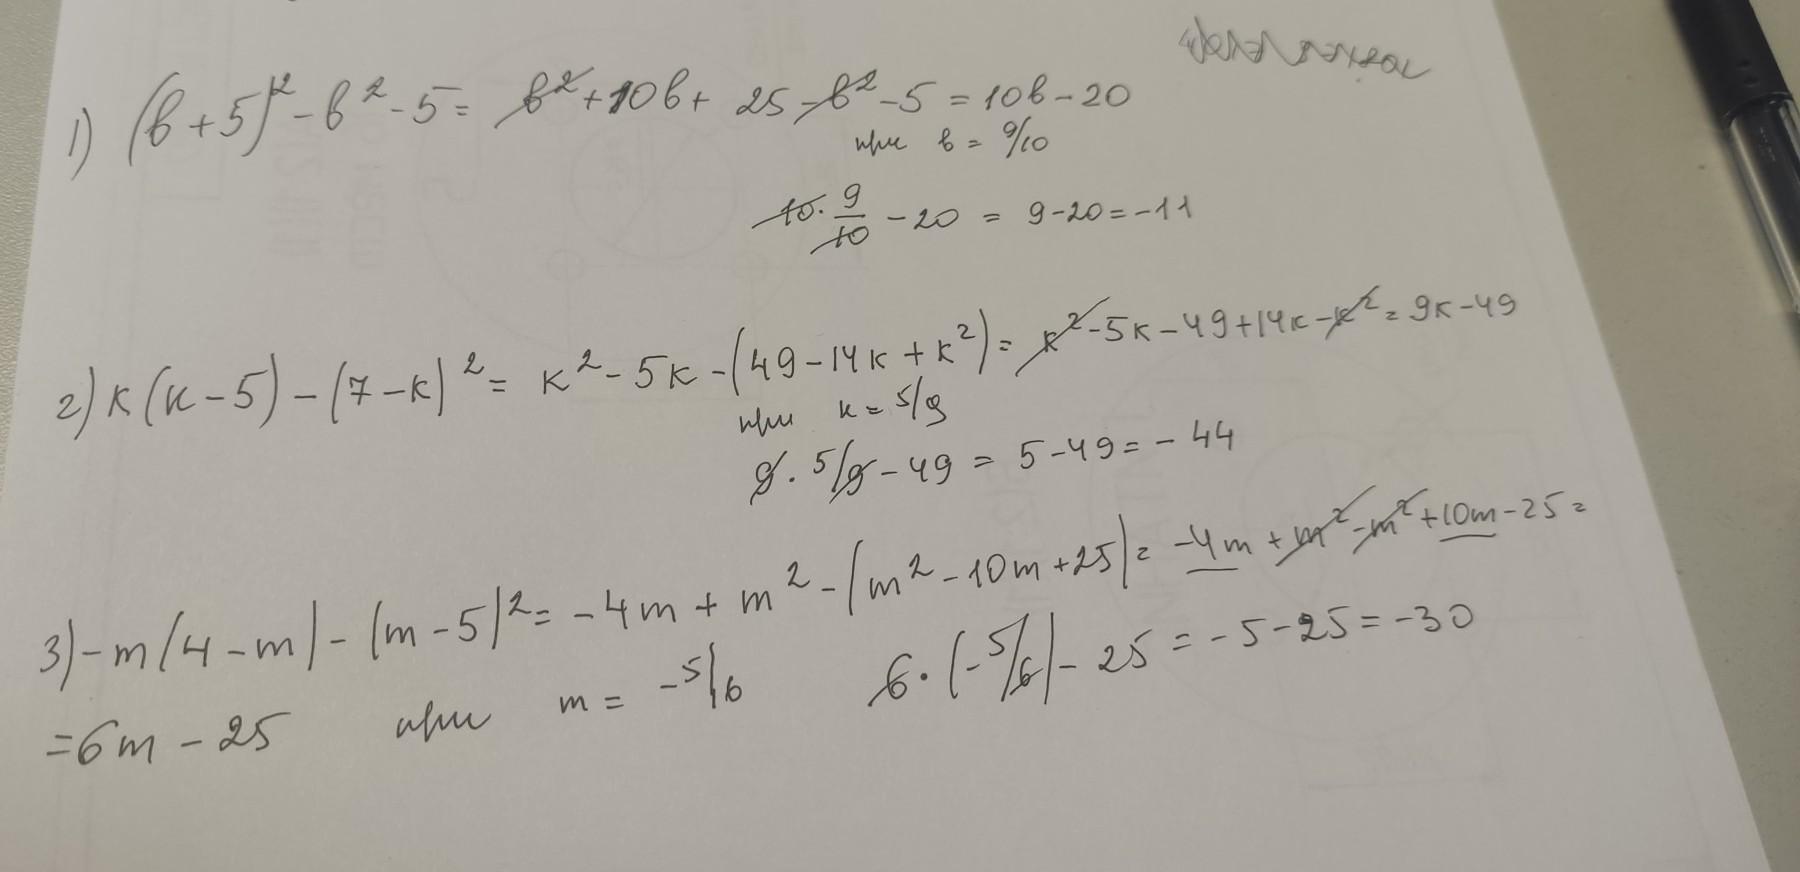 1) (b+5)² - b² - 5 = b² + 10b + 25 - b² - 5 = 10b - 20
при b = 9/10
10 · 9/10 - 20 = 9-20 = -11
2) k(k-5) - (7-k)² = k² - 5k - (49 - 14k + k²) = k² - 5k - 49 + 14k - k² = 9k - 49
при k = 5/9
9 · 5/9 - 49 = 5 - 49 = - 44
3) -m(4-m) - (m-5)² = -4m + m² - (m² - 10m + 25) = -4m + m² - m² + 10m - 25 =
= 6m - 25 при m = -5/6 6 · (-5/6) - 25 = -5 - 25 = -30